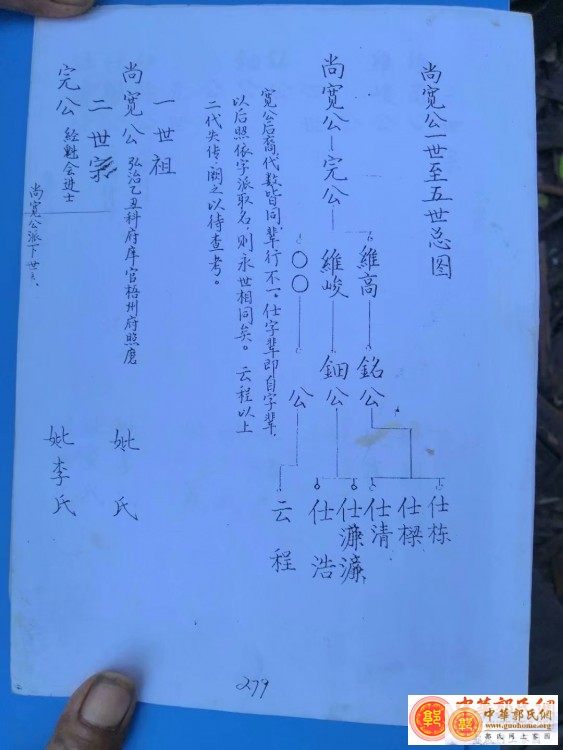 尚宽公一世至五世总图
尚宽公
完公
維高
維峻
〇〇
銘公
鈿公
公
仕栋
仕樑
仕清
仕濂
仕浩
云程
宽公后裔代数皆同,辈行不一。仕字辈即自字辈,
以后照依字派取名,则永世相同矣。云程以上
二代失传,阙之以待查考。
一世祖
尚宽公 弘治乙丑科府库官梧州府照磨 妣 氏
二世宗
完公 経魁会进士 妣李氏
尚宽公派下世
279
中華郭氏網
www.guohome.org
郭氏网上家园